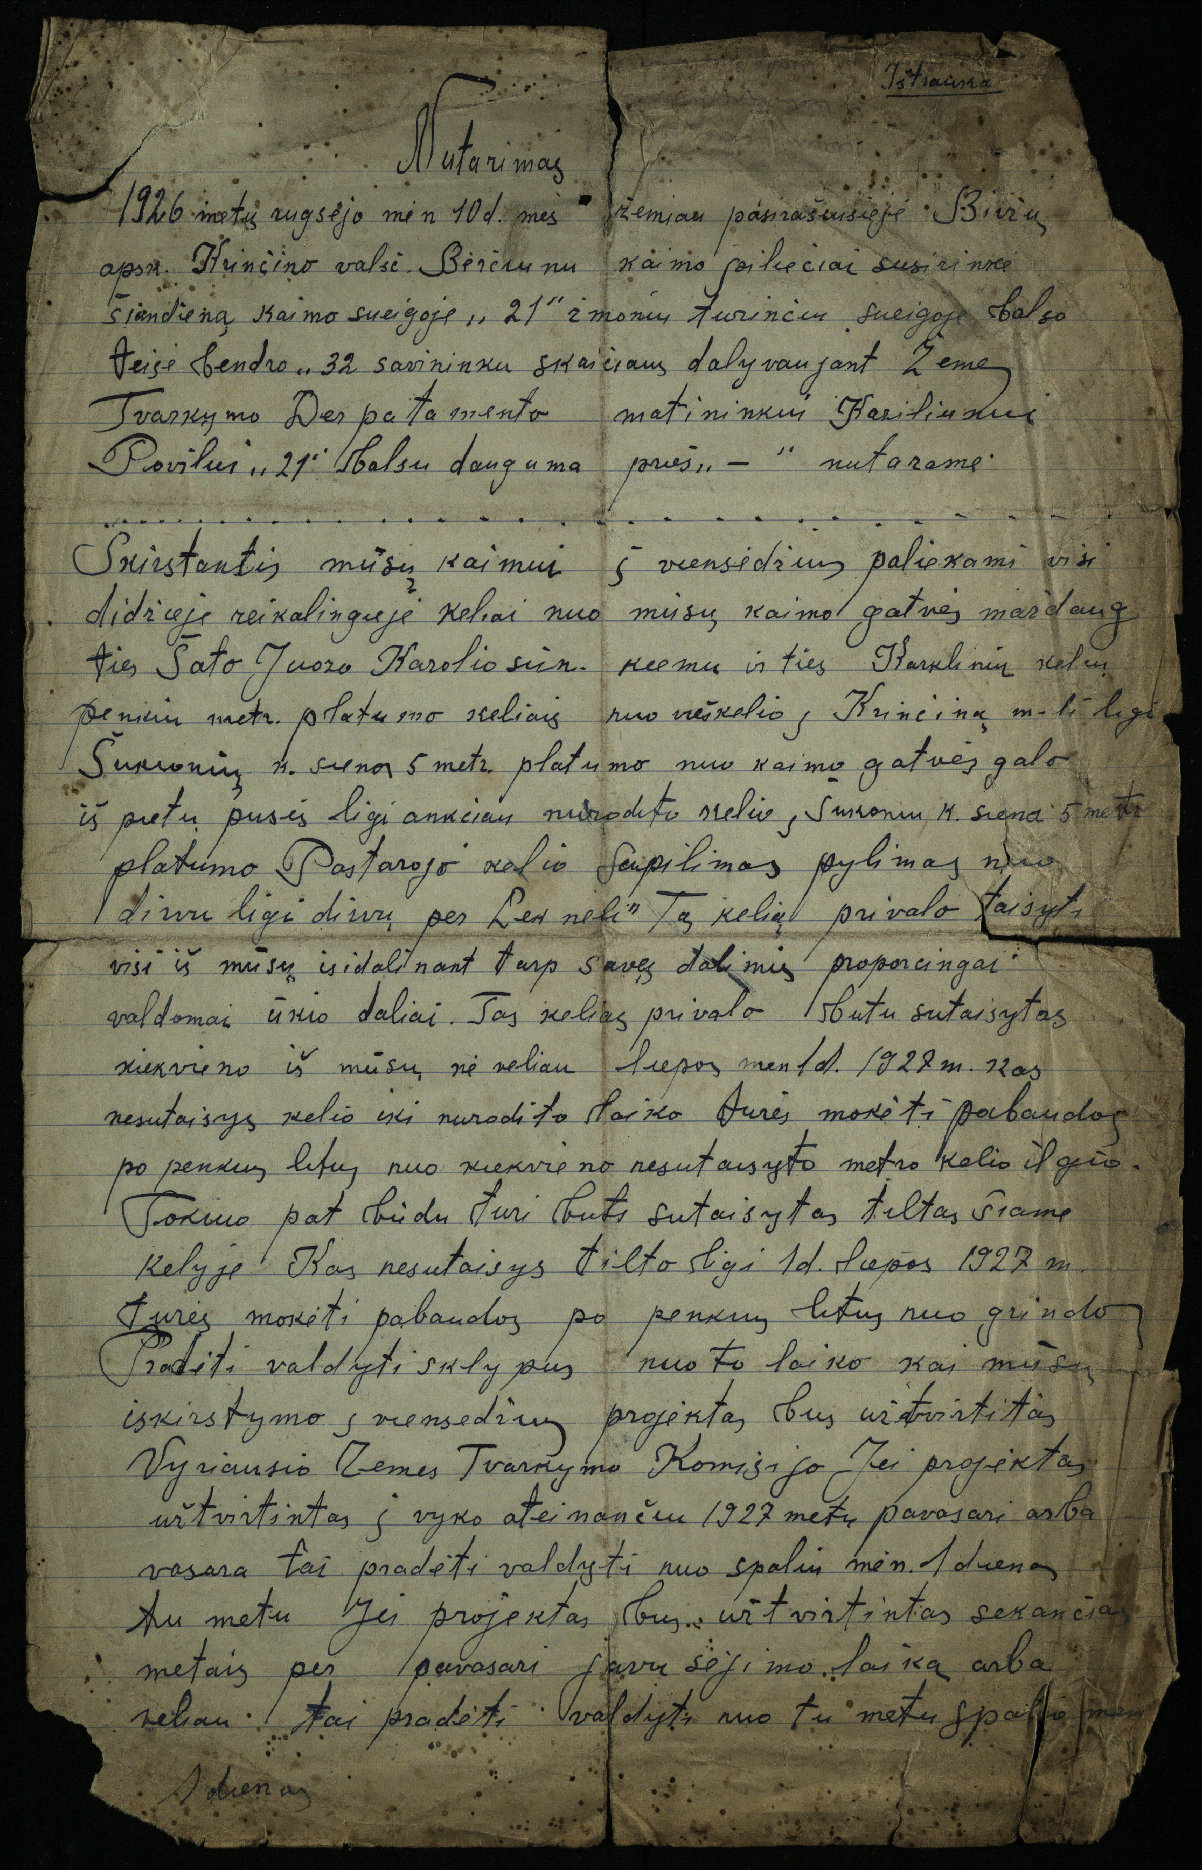 Ištrauka
Nutarimas
1926 metų rugsėjo mėn 10 d. mes žemiau pasirašiusieje Biržų
apsk. Krinčino valsč. Berčiunu kaimo piliečiai susirinke
šiandieną kaimo sueigoje „21" žmoniu turinčiu sueigoje balso
teise bendro „32 savininku skaičiaus dalyvaujant Žemes
Tvarkymo Departamento matininkui Kaziliunui
Povilui „21" balsu dauguma prieš „—" nutarame
Skirstantis mūsų kaimui į viensėdžius paliekami visi
didzieje reikalingieje keliai nuo mūsų kaimo gatvės maždaug
ties Šato Juozo Karolio sūn. kiemu ir ties Karklinių keliu
penkiu metr. platumo keliais nuo vieškelio į Krinčiną m-li ligi
Šukionių k. sienos 5 metr. platumo nuo kaimo gatvės galo
iš pietų pusės ligi ankščiau nurodito kelio į Šukoniu k. siena 5 metr
platumo Pastarojo kelio supilimas pylimas nuo
dirvu ligi dirvų per Leknelį" Tą kelią privalo taisyti
visi iš mūsų isidalinant tarp savęs dalimis proporcingai
valdomai ūkio daliai. Tas kelias privalo butu sutaisytas
kiekvieno iš mūsų ne veliau liepos men 1 d. 1927 m. Kas
nesutaisys kelio iki nurodito laiko turės mokėti pabaudos
po penkius litus nuo kiekvieno nesutaisyto metro kelio ilgio.
Tokiuo pat būdu turi buti sutaisytas tiltas šiame
kelyje Kas nesutaisys tilto ligi 1 d. liepos 1927 m.
turės mokėti pabaudos po penkius litus nuo grindos
Pradėti valdyti sklypus nuo to laiko kai mūsų
iskirstymo į viensedžius projektas bus užtvirtitas
Vyriausio Žemes Tvarkymo Komisijo Jei projektas
užtvirtintas į vyko ateinančiu 1927 metų pavasari arba
vasara tai pradėti valdyti nuo spaliu mėn. 1 dienos
tu metu Jei projektas bus užtvirtintas sekančias
metais per pavasari javu sėjimo laiką arba
veliau tai pradėti valdyti nuo tu metu spalio men
1 dienos